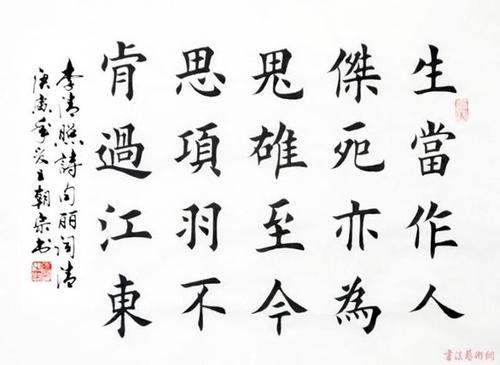 生當作人
傑死亦為
鬼雄至今
思項羽不
肯過江東
李清照詩句丽词清
庚寅年
王朝
书
書法藝術網